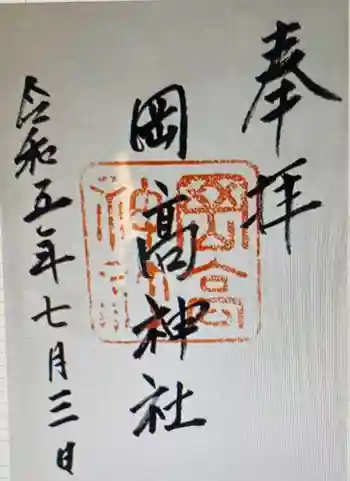 奉拝
岡高神社
令和五年七月三日